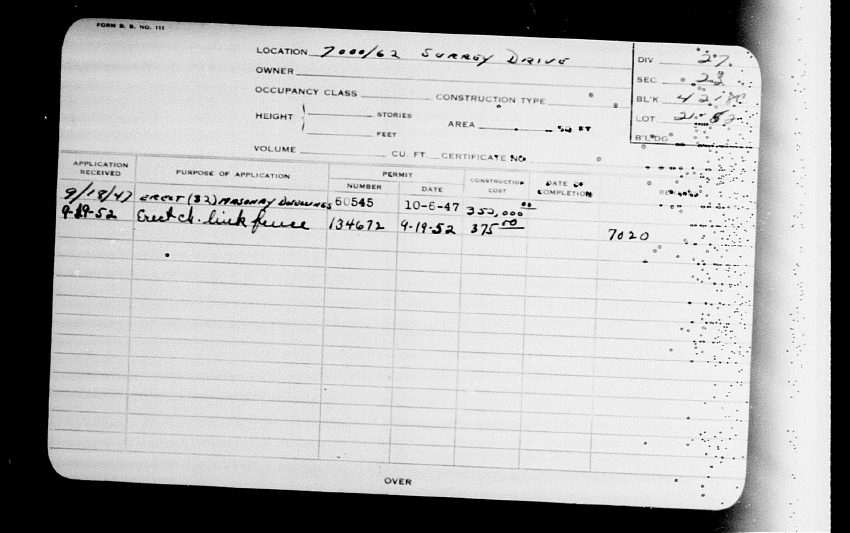 FORM B. B. NO. 111
LOCATION 7000/62 SURREY DRIVE
OWNER
OCCUPANCY CLASS CONSTRUCTION TYPE
HEIGHT STORIES
FEET
AREA SQ FT
VOLUME CU. FT. CERTIFICATE NO.
DIV. 27
SEC. 23
BL'K
LOT
B'LDG
APPLICATION RECEIVED PURPOSE OF APPLICATION PERMIT NUMBER DATE CONSTRUCTION COST DATE OF COMPLETION
9/18/47 ERECT (32) MASONRY DWELLINGS 60545 10-6-47 352,000 00
9-19-52 Erect ch. link fence 134672 9-19-52 375 00 7020
OVER